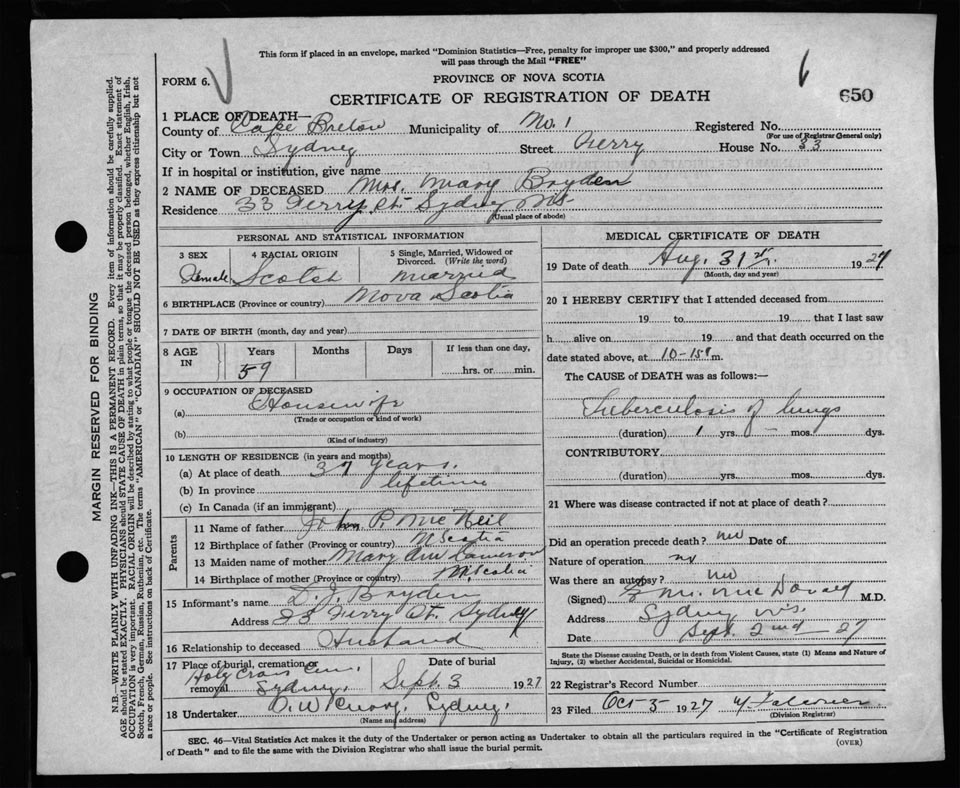 This form if placed in an envelope, marked "Dominion Statistics—Free, penalty for improper use $300," and properly addressed
will pass through the Mail "FREE"
FORM 6.
PROVINCE OF NOVA SCOTIA
CERTIFICATE OF REGISTRATION OF DEATH
650
1 PLACE OF DEATH—
County of Cape Breton Municipality of No. 1 Registered No.
(For use of Registrar General only)
City or Town Sydney Street Ferry House No. 33
If in hospital or institution, give name
2 NAME OF DECEASED Mrs. Mary Bryden
Residence 33 Ferry St Sydney
(Usual place of abode)
PERSONAL AND STATISTICAL INFORMATION
3 SEX 4 RACIAL ORIGIN 5 Single, Married, Widowed or Divorced. (Write the word)
Female Scotch Married
6 BIRTHPLACE (Province or country) Nova Scotia
7 DATE OF BIRTH (month, day and year)
8 AGE IN Years Months Days If less than one day,
59 hrs. or min.
9 OCCUPATION OF DECEASED
(a) Housewife
(Trade or occupation or kind of work)
(b)
(Kind of industry)
10 LENGTH OF RESIDENCE (in years and months)
(a) At place of death 37 years.
(b) In province lifetime
(c) In Canada (if an immigrant)
Parents
11 Name of father John P. McNeil
12 Birthplace of father (Province or country) N Scotia
13 Maiden name of mother Mary Ann Cameron
14 Birthplace of mother (Province or country) N. Scotia
15 Informant's name D. J. Bryden
Address 33 Ferry St. Sydney
16 Relationship to deceased Husband
17 Place of burial, cremation or removal Date of burial
Holy Cross Cem. Sydney. Sept. 3 1927
18 Undertaker Sydney.
(Name and address)
MEDICAL CERTIFICATE OF DEATH
19 Date of death Aug. 31st. 1927
(Month, day and year)
20 I HEREBY CERTIFY that I attended deceased from
19 to 19 that I last saw
h alive on 19 and that death occurred on the
date stated above, at 10-15 m.
The CAUSE of DEATH was as follows:—
Tuberculosis of lungs
(duration) 1 yrs. – mos. dys.
CONTRIBUTORY
(duration) yrs. mos. dys.
21 Where was disease contracted if not at place of death?
Did an operation precede death? no Date of
Nature of operation no
Was there an autopsy? no
(Signed) McDonald M.D.
Address Sydney N.S.
Date Sept. 2nd 27
State the Disease causing Death, or in death from Violent Causes, state (1) Means and Nature of
Injury, (2) whether Accidental, Suicidal or Homicidal.
22 Registrar's Record Number
23 Filed Oct 5 1927
(Division Registrar)
SEC. 46—Vital Statistics Act makes it the duty of the Undertaker or person acting as Undertaker to obtain all the particulars required in the "Certificate of Registration
of Death" and to file the same with the Division Registrar who shall issue the burial permit.
(OVER)
MARGIN RESERVED FOR BINDING
N.B.—WRITE PLAINLY WITH UNFADING INK—THIS IS A PERMANENT RECORD. Every item of information should be carefully supplied.
AGE should be stated EXACTLY. PHYSICIANS should STATE CAUSE OF DEATH in plain terms, so that it may be properly classified. Exact statement of
OCCUPATION is very important. RACIAL ORIGIN will be described by stating to what people or tongue the deceased person belonged, whether English, Irish,
Scotch, French, German, Russian, Ruthenian, etc. The terms "AMERICAN" or "CANADIAN" SHOULD NOT BE USED as they express citizenship but not
a race or people. See instructions on back of Certificate.